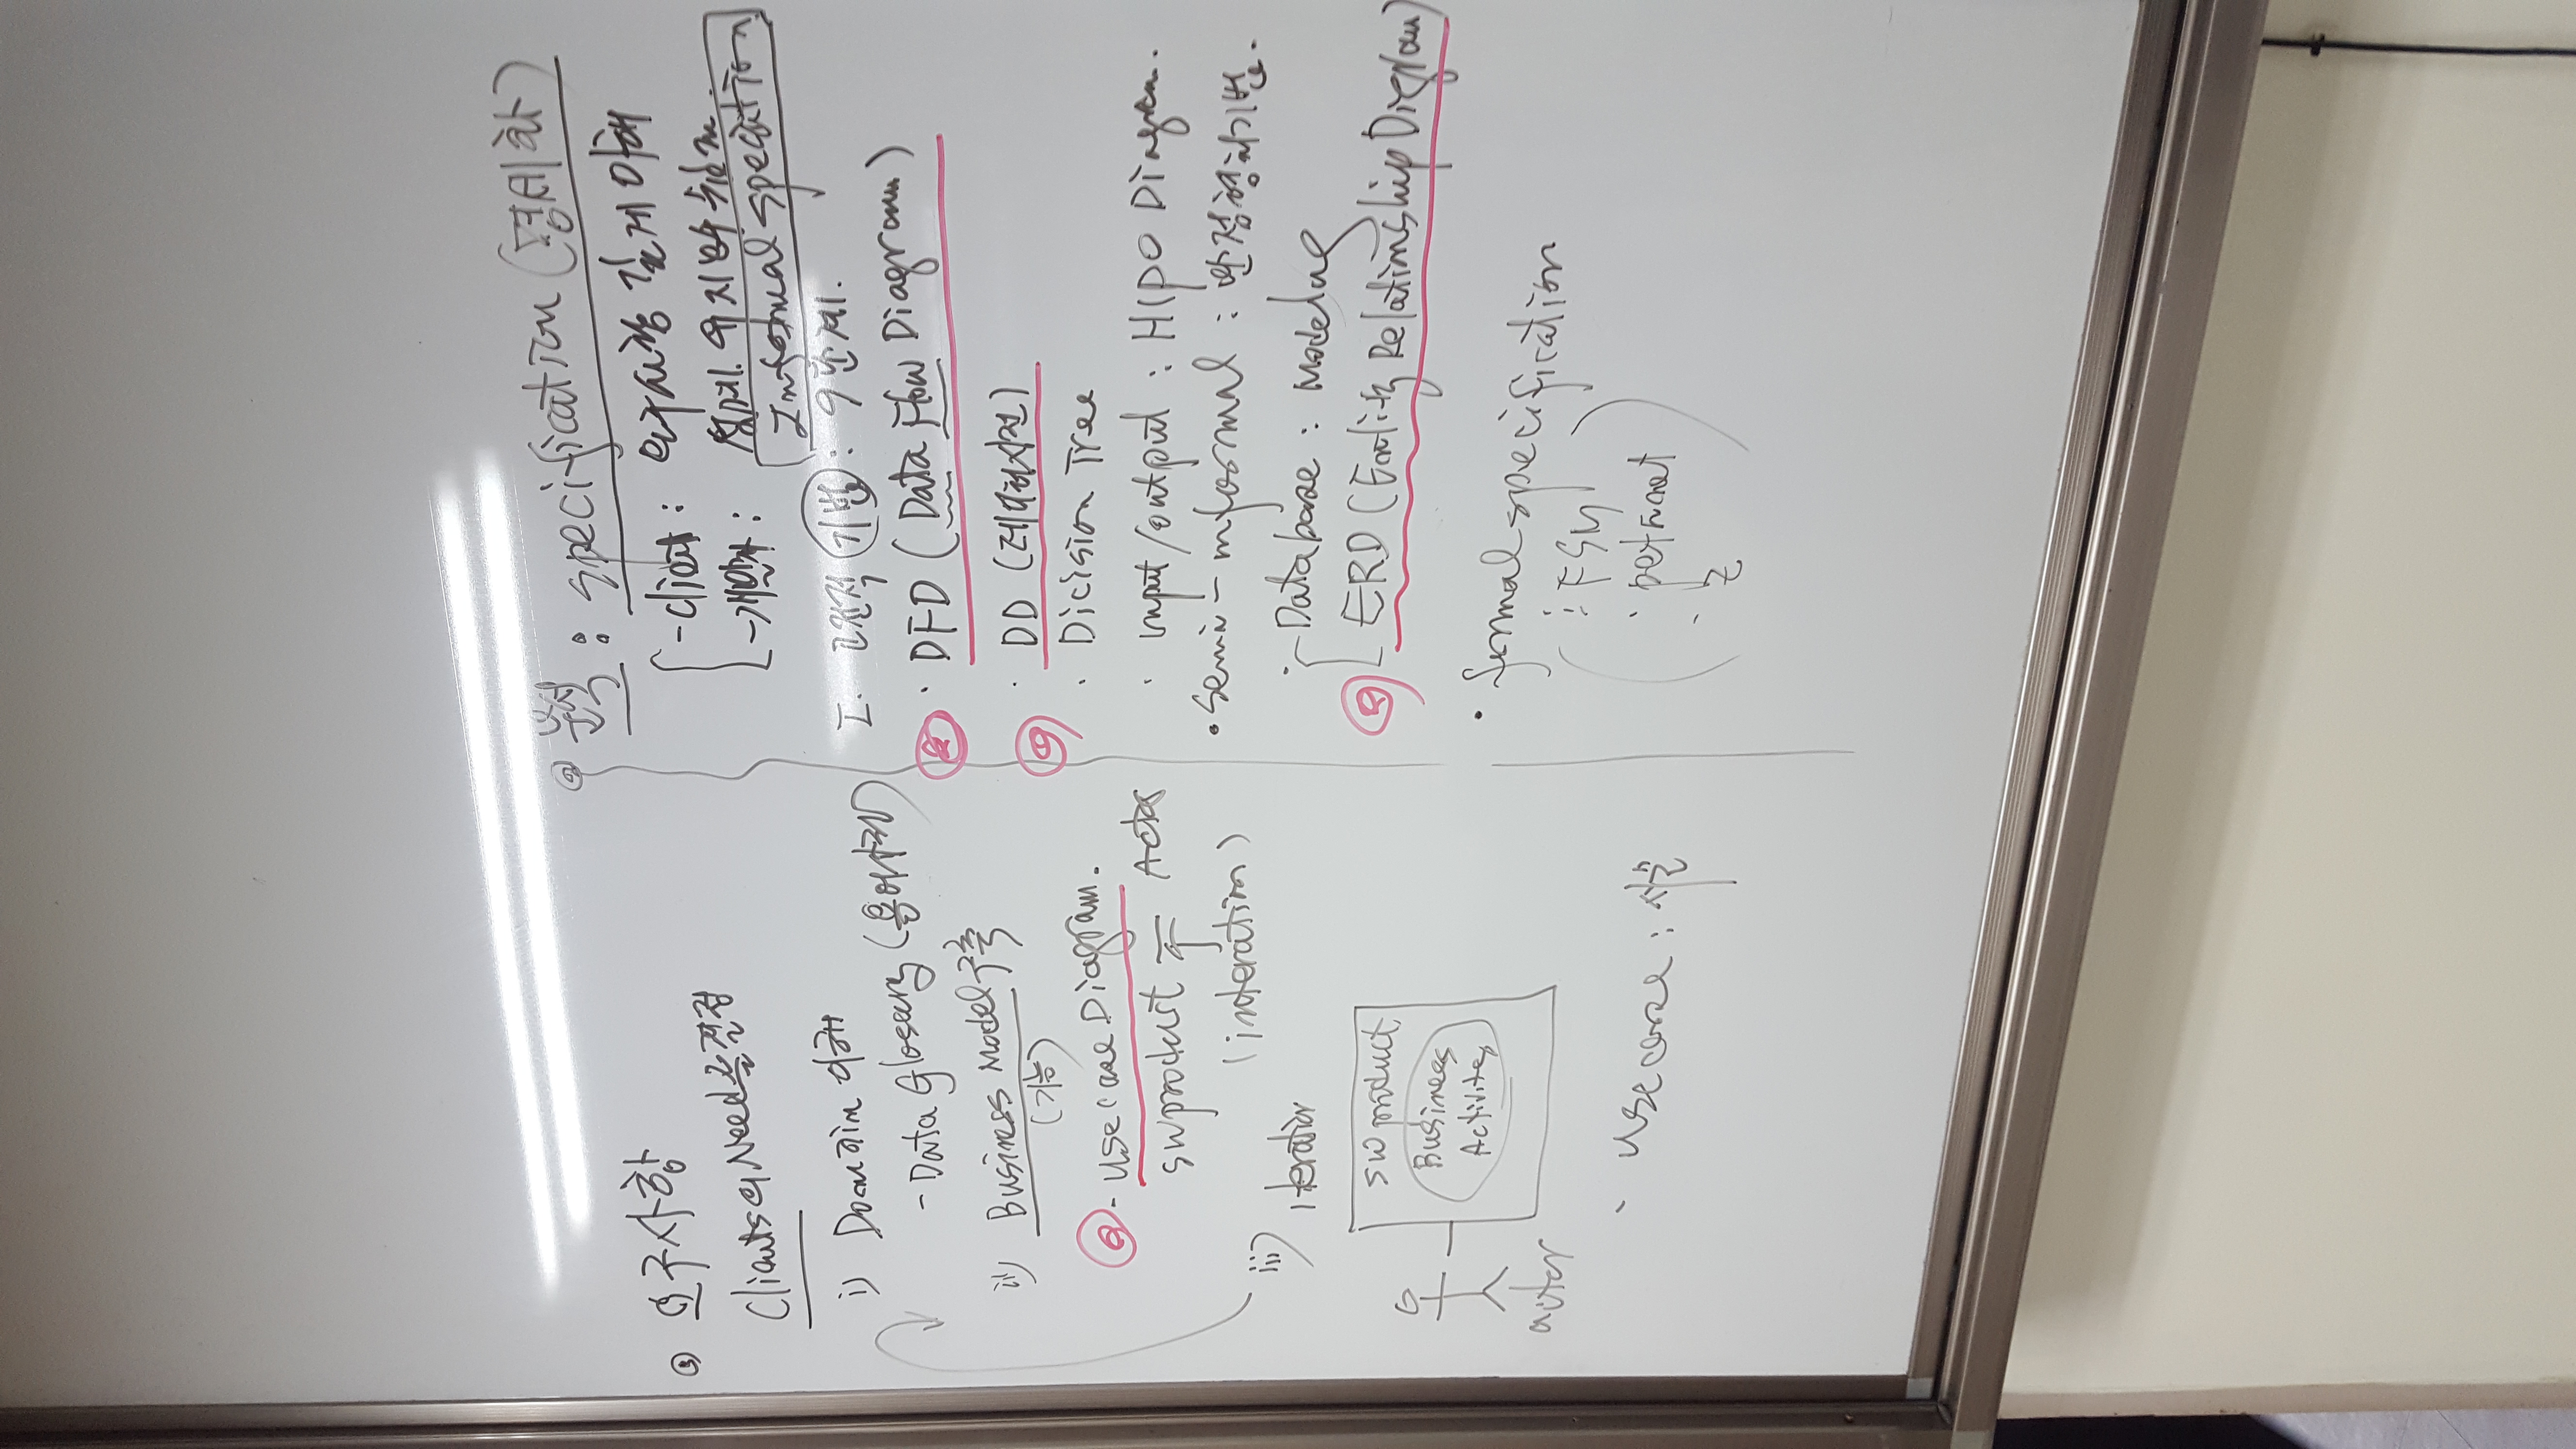 요구사항
Clients의 Need를 결정
i) Domain 이해
- Data Glossary (용어사전)
ii) Business Model 구축
(기능)
- Use Case Diagram.
SW product Actor
(interation)
iii) iteration
SW product
Business
Activites
actor
· Use case :
분석 : specification (명세화)
- client : 요구사항 깊게 이해
- 개발자 : 설계. 유지보수
Informal specition
I. 고전적 기법 : 9단계.
· DFD (Data Flow Diagram)
· DD (데이터사전)
· Dicision Tree
· input/output : HIPO Diagram.
· Semi-informal : 반정형화기법.
· Database : Modeling
ERD (Entity Relationship Diagram)
· formal specification
: FSM
· petrinet
· Z